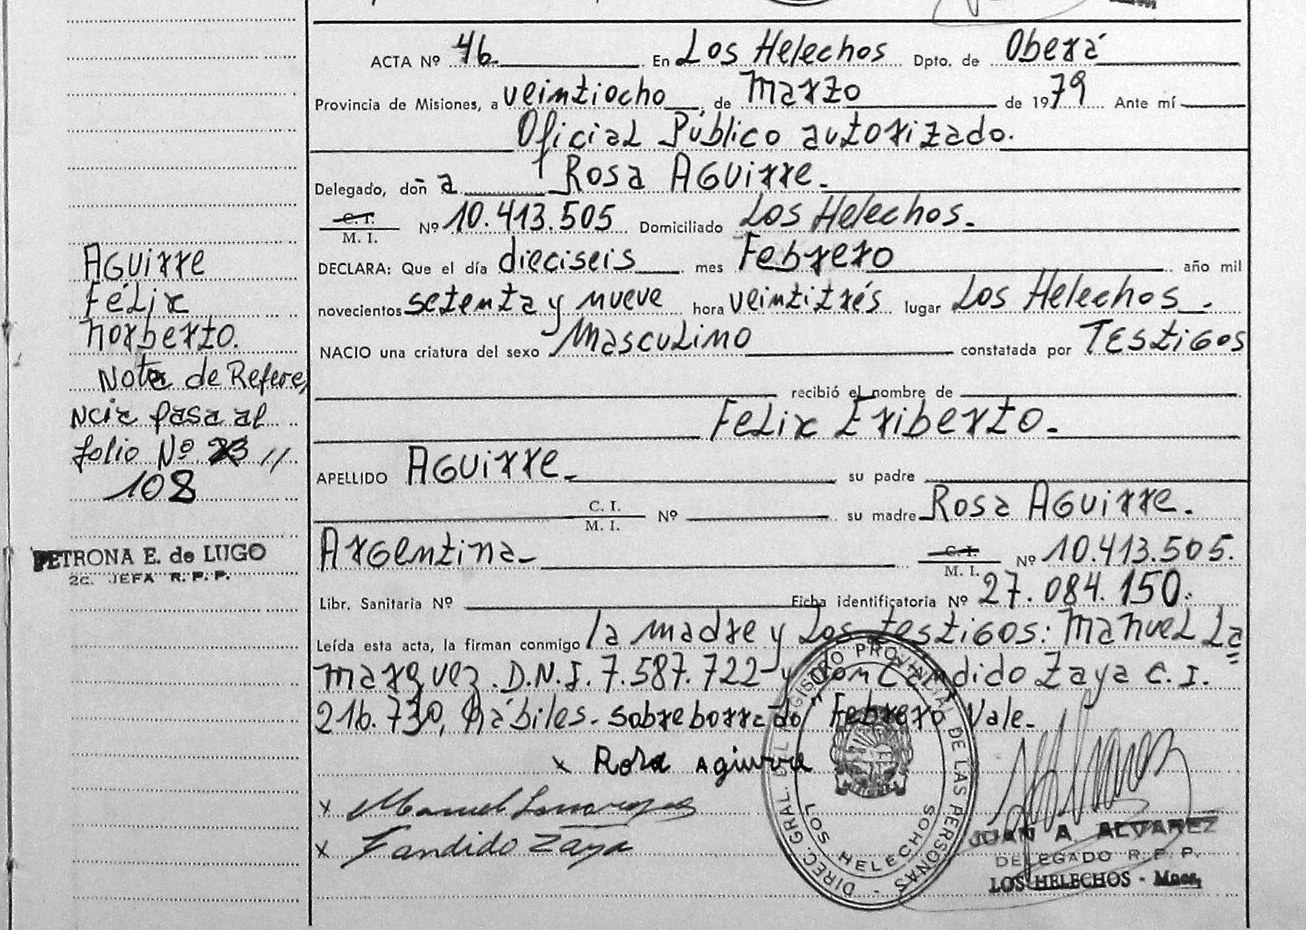 Aguirre
Félix
Norberto.
Nota de Refere,
ncia pasa al
folio Nº 23 //
108
PETRONA E. de LUGO
2a. JEFA R. P. P.
ACTA Nº 46 En Los Helechos Dpto. de Oberá
Provincia de Misiones, a veintiocho de Marzo de 1979 Ante mí
Oficial Público autorizado.
Delegado, doña Rosa Aguirre.
C. I.
M. I. Nº 10.413.505 Domiciliado Los Helechos.
DECLARA: Que el día dieciseis mes Febrero año mil
novecientos setenta y nueve hora veintitrés lugar Los Helechos.
NACIO una criatura del sexo Masculino constatada por Testigos
recibió el nombre de
Felix Eriberto.
APELLIDO Aguirre. su padre
C. I.
M. I. Nº su madre Rosa Aguirre.
Argentina C. I.
M. I. Nº 10.413.505.
Libr. Sanitaria Nº Ficha identificatoria Nº 27.084.150.
Leída esta acta, la firman conmigo la madre y Los testigos: Manuel La
marquez. D.N.I. 7.587.722 y don Candido Zaya C. I.
216.730, hábiles. sobreborrado "Febrero" Vale.
x Rosa Agiurre
x Manuel Lamarquez
x Candido Zaya
DIREC. GRAL. DEL REGISTRO PROVINCIAL DE LAS PERSONAS -
LOS HELECHOS
JUAN A. ALVAREZ
DELEGADO R. P. P.
LOS HELECHOS - Mnes.